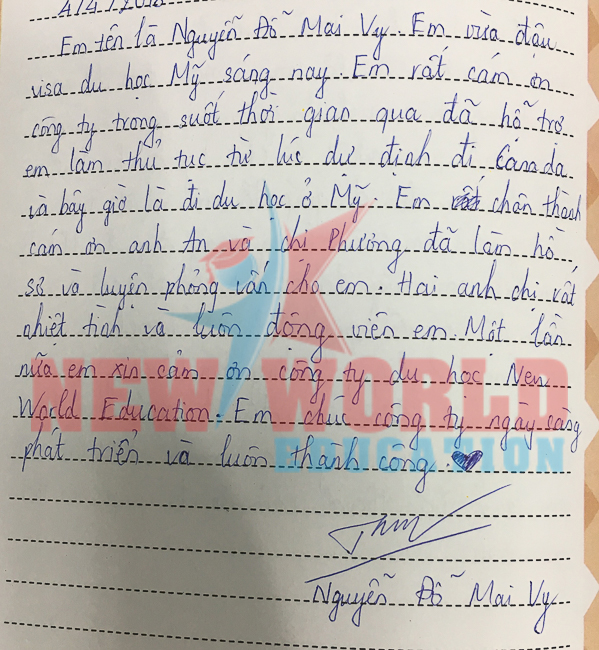 4/4/2018
Em tên là Nguyễn Đỗ Mai Vy. Em vừa đậu
visa du học Mỹ sáng nay. Em rất cám ơn
công ty trong suốt thời gian qua đã hỗ trợ
em làm thủ tục từ lúc dự định đi Canada
và bây giờ là đi du học ở Mỹ. Em chân thành
cám ơn anh An và chị Phương đã làm hồ
sơ và luyện phỏng vấn cho em. Hai anh chị rất
nhiệt tình và luôn động viên em. Một lần
nữa em xin cảm ơn công ty du học New
World Education. Em chúc công ty ngày càng
phát triển và luôn thành công.
Nguyễn Đỗ Mai Vy
NEW WORLD
EDUCATION